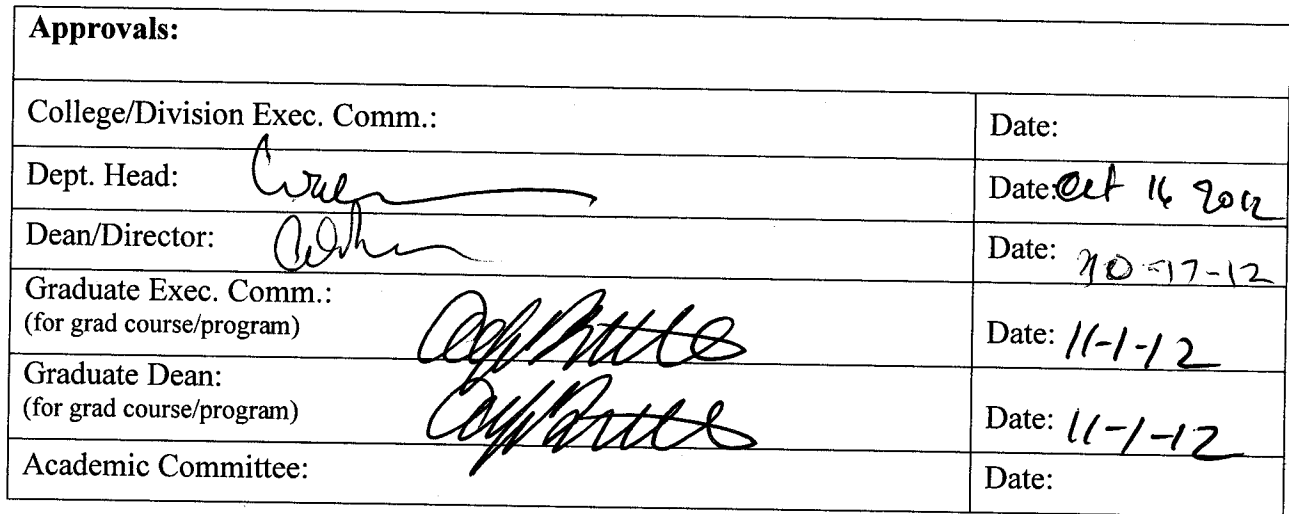 Approvals:
College/Division Exec. Comm.: Date:
Dept. Head: Date: Oct 16 2012
Dean/Director: Date: 10-17-12
Graduate Exec. Comm.:
(for grad course/program) Date: 11-1-12
Graduate Dean:
(for grad course/program) Date: 11-1-12
Academic Committee: Date: